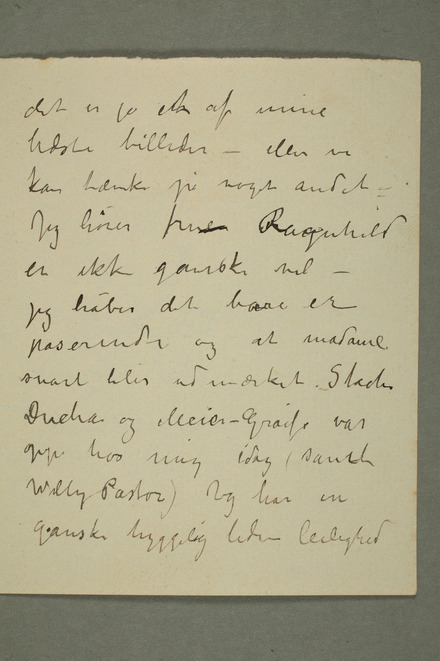 det er jo et af mine
bedste billeder – eller vi
kan tænke på noget andet –
Jeg hører fruen Ragnhild
er ikke ganske vel –
jeg håber det bare er
paserende og at madame
snart blir udmærket. Stachu
Ducha og Meier-Gräfe var
oppe hos mig idag (samt
Willy Pastor) Jeg har en
ganske hyggelig liden leilighed